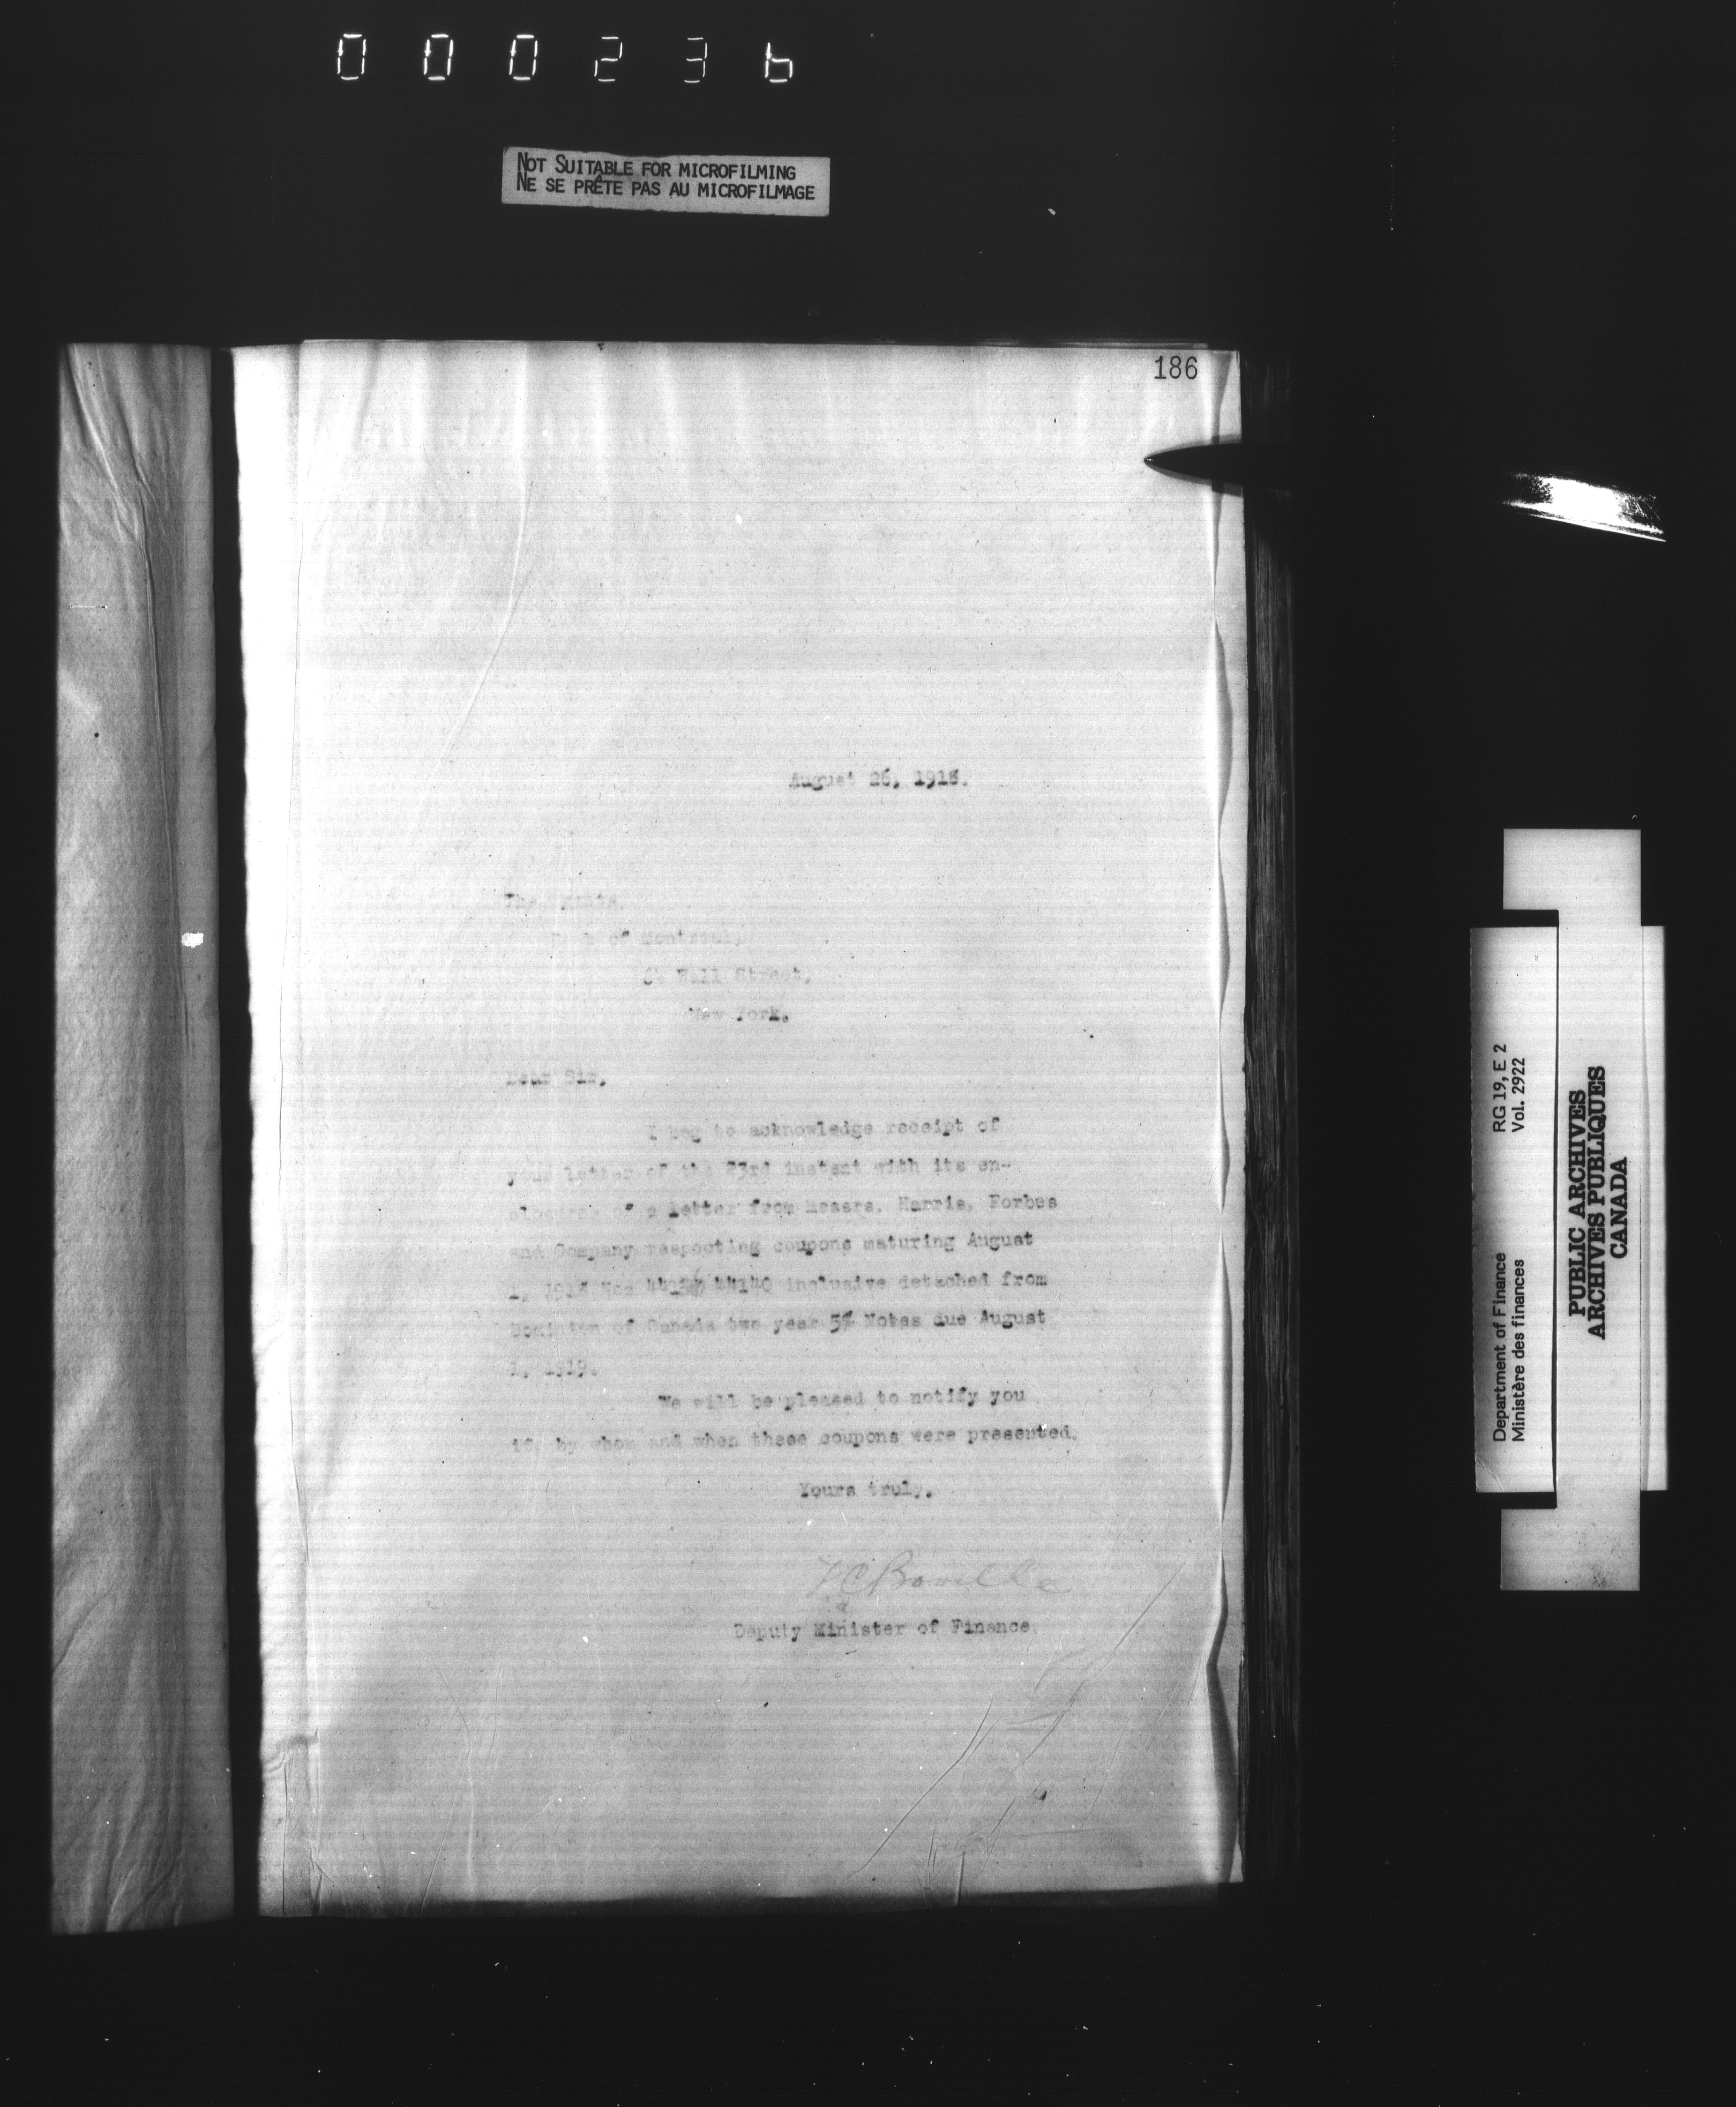 000236
NOT SUITABLE FOR MICROFILMING
NE SE PRÊTE PAS AU MICROFILMAGE
186
August 26, 1918.
The Agents,
Bank of Montreal,
64 Wall Street,
New York.
Dear Sir,
I beg to acknowledge receipt of
your letter of the 23rd instant with its en-
closures of a letter from Messrs. Harris, Forbes
and Company respecting coupons maturing August
1, 1918 Nos 44140 inclusive detached from
Dominion of Canada two year 5% Notes due August
1, 1919.
We will be pleased to notify you
if, by whom and when these coupons were presented.
Yours truly,
T C Boville
Deputy Minister of Finance.
Department of Finance RG 19, E 2
Ministère des finances Vol. 2922
PUBLIC ARCHIVES
ARCHIVES PUBLIQUES
CANADA